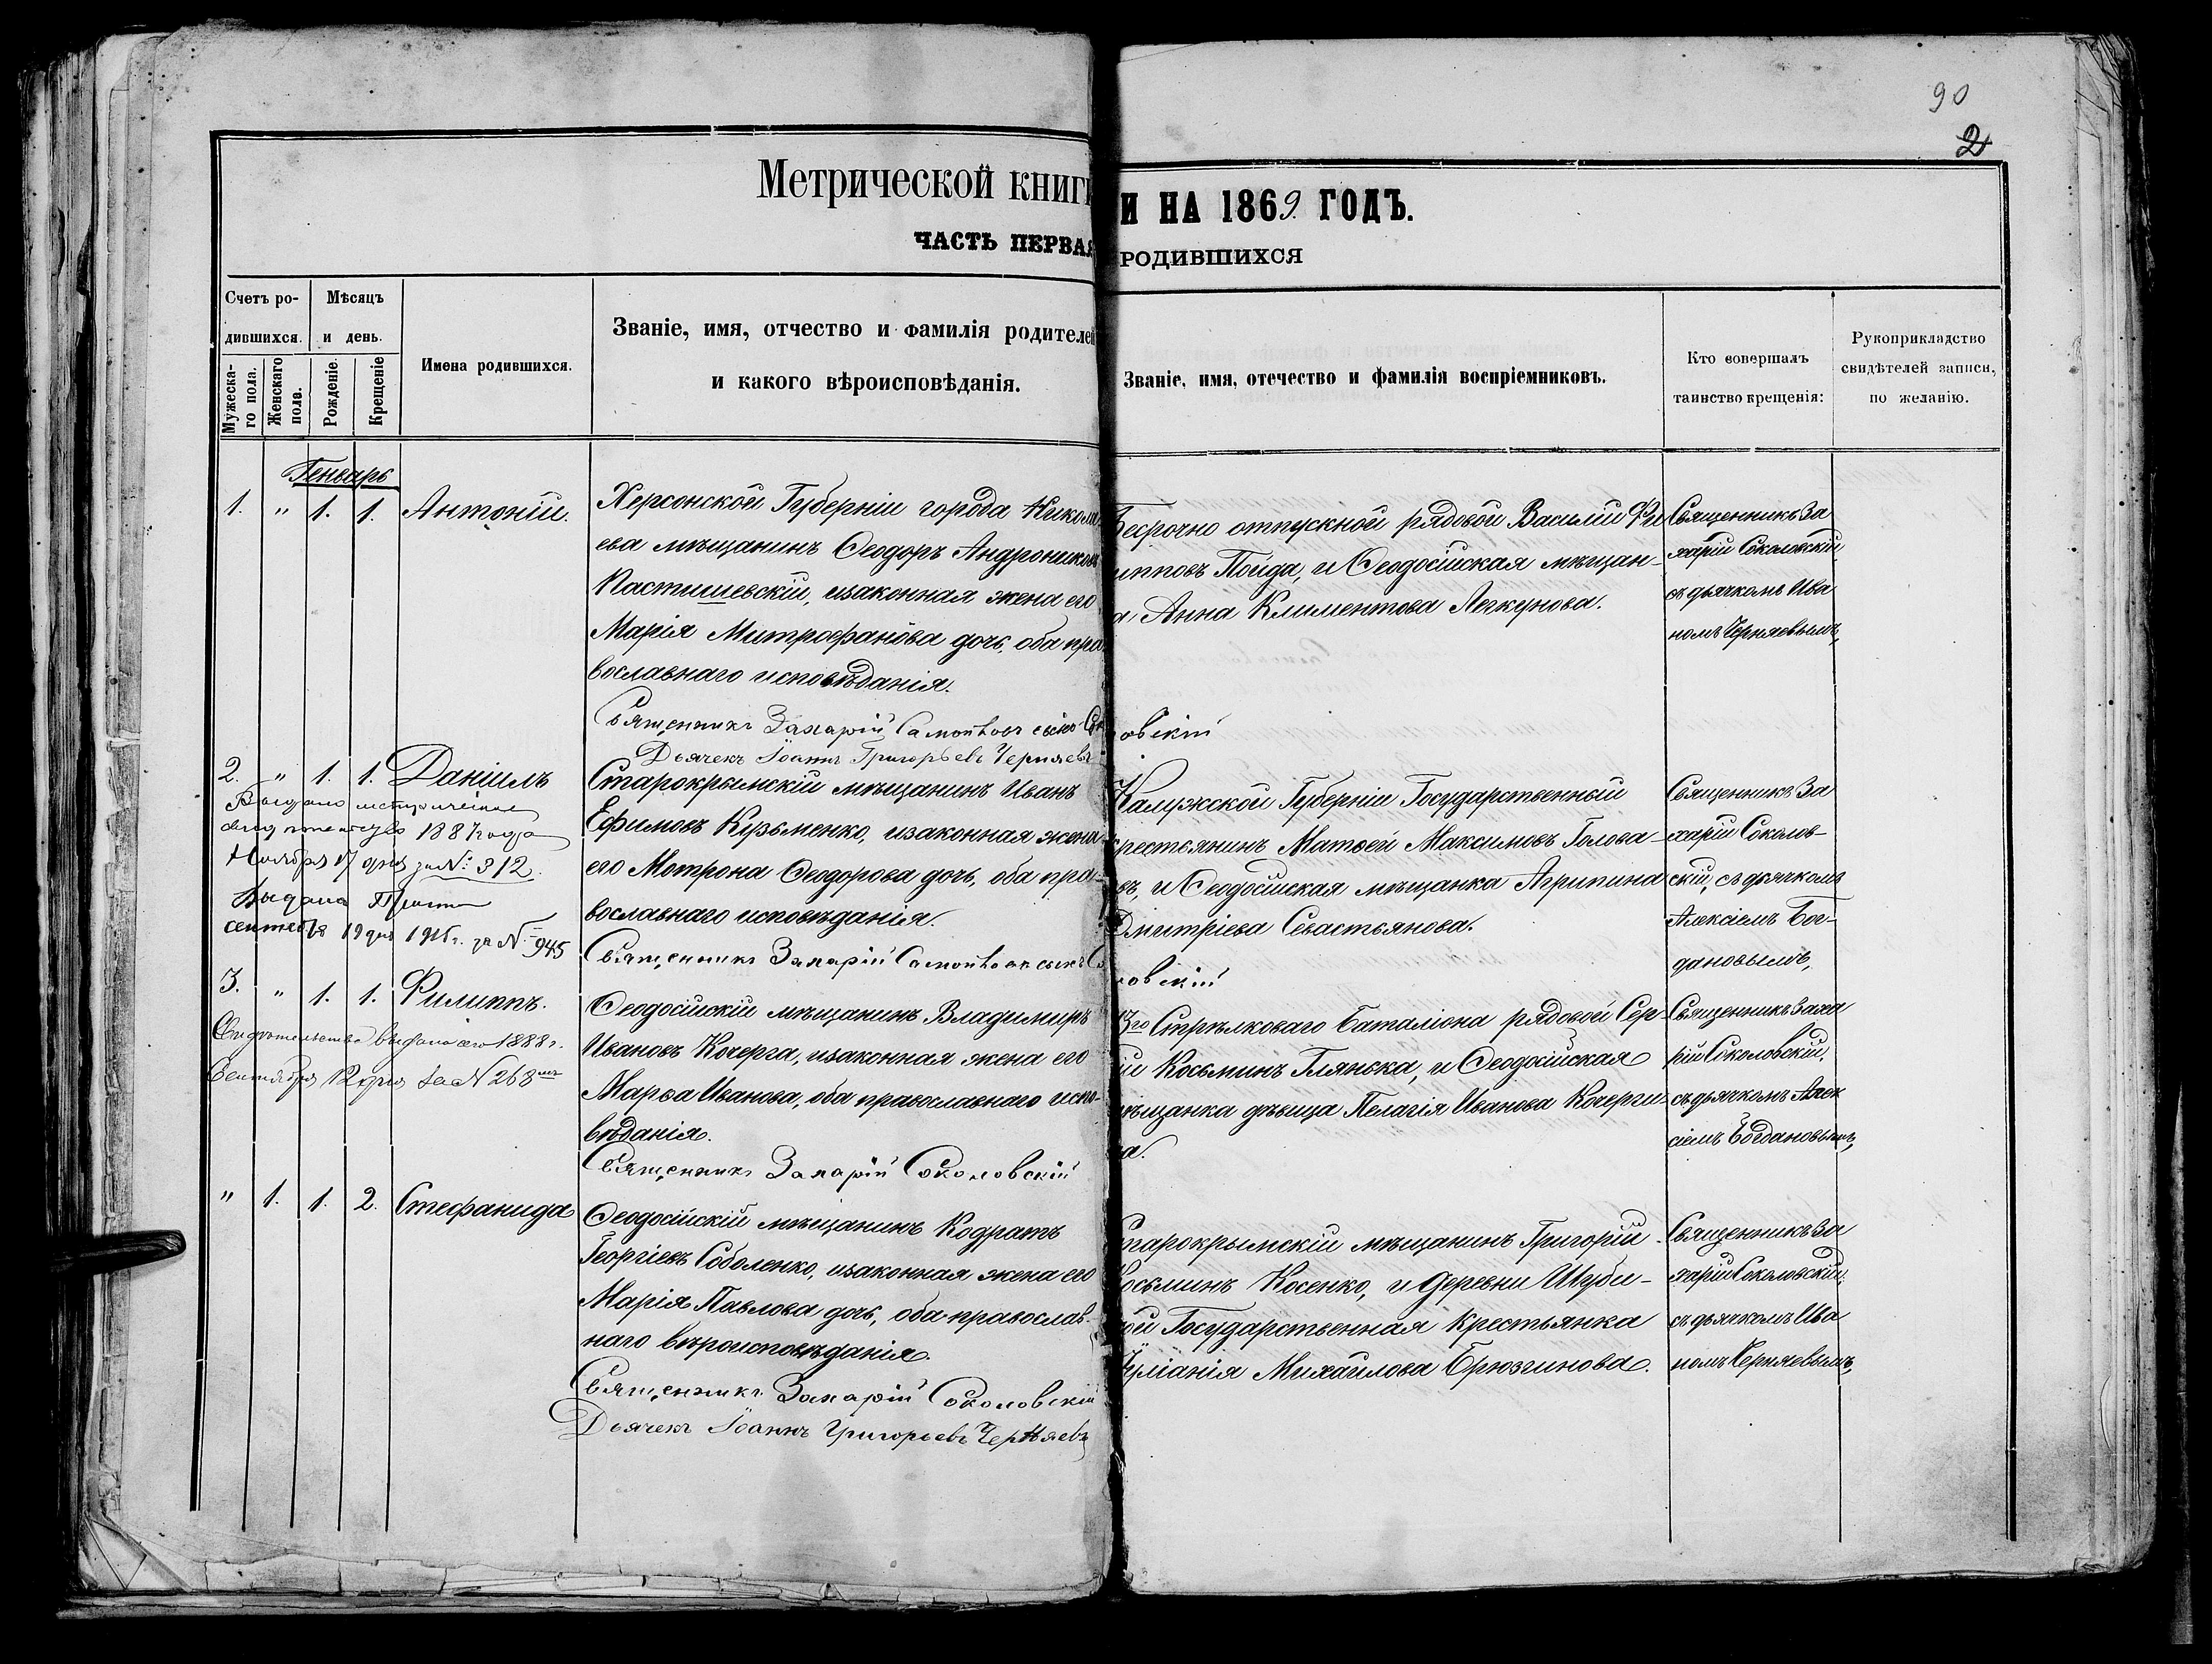 90
2
Метрической книги
И НА 1869. ГОДЪ.
ЧАСТЬ ПЕРВАЯ
РОДИВШИХСЯ
Счетъ родившихся.
Мѣсяцъ и день.
Мужескаго пола.
Женскаго пола.
Рожденіе.
Крещеніе
Имена родившихся.
Званіе, имя, отчество и фамилія родителей
и какого вѣроисповѣданія.
Званіе, имя, отечество и фамилія воспріемниковъ.
Кто совершалъ
таинство крещенія:
Рукоприкладство
свидѣтелей записи,
по желанію.
Генварь
1. " 1. 1. Антоній.
Херсонской Губерніи города Никола
ева мѣщанинъ Ѳеодоръ Андрониковъ
Пастишевскій, изаконная жена его
Марія Митрофанова дочь, оба пра
вославнаго исповѣданія.
Священникъ Захарій Самойловъ сынъ
Дьячекъ Іоаннъ Григорьевъ Черняевъ
Безсрочно отпускной рядовой Василій Фи
иповъ Пойда, и Ѳеодосійская мѣщан-
а, Анна Климентова Легкунова.
овскій
Священникъ За
харій Соколовскій,
съ дьячкомъ Ива
номъ Черняевымъ,
2. " 1. 1. Даніилъ
Выдано метрическое
свидѣтельство 1887 года
Ноября 17 дня за №: 312.
Выдана
сентебря 19 дня за № 945
Старокрымскій мѣщанинъ Иванъ
Ефимовъ Кузьменко, изаконная жена
его Мотрона Ѳеодорова дочь, оба пра-
вославнаго исповѣданія.
Священникъ Захарій Самойловъ сынъ
Калужской Губерніи Государственный
крестьянинъ Матвей Максимовъ Голова-
въ, и Ѳеодосійская мѣщанка Агрипина
Дмитріева Севастьянова.
ловскій
Священникъ За
харій Соколов-
скій, съ дьячкомъ
Алексіемъ Бог-
дановымъ,
3. " 1. 1. Филиппъ.
Свидѣтельство выдано 1888 г.
Сентября 12 дня за № 268
Ѳеодосійскій мѣщанинъ Владимиръ
Ивановъ Кочерга, изаконная жена его
Марѳа Иванова, оба православнаго испо-
вѣданія.
Священникъ Захарій Соколовскій
13го Стрѣлковаго баталіона рядовой Сер-
ій Косьминъ Глянька, и Ѳеодосійская
мѣщанка дѣвица Пелагія Иванова Кочерги-
а.
Священникъ Заха
рій Соколовскій,
съ дьячкомъ Алек
сіемъ Богдановымъ,
" 1. 1. 2. Стефанида
Ѳеодосійскій мѣщанинъ Кодратъ
Георгіевъ Соболенко, изаконная жена его
Марія Павлова дочь, оба православ-
наго вѣроисповѣданія.
Священникъ Захарій Соколовскій
Дьячекъ Іоаннъ Григорьевъ Черняевъ
Старокрымскій мѣщанинъ Григорій
Косьминъ Косенко, и деревни Шуби-
ой Государственная крестьянка
Іуліанія Михайлова Брюзгинова.
Священникъ За
харій Соколовскій,
съ дьячкомъ Ива
номъ Черняевымъ,